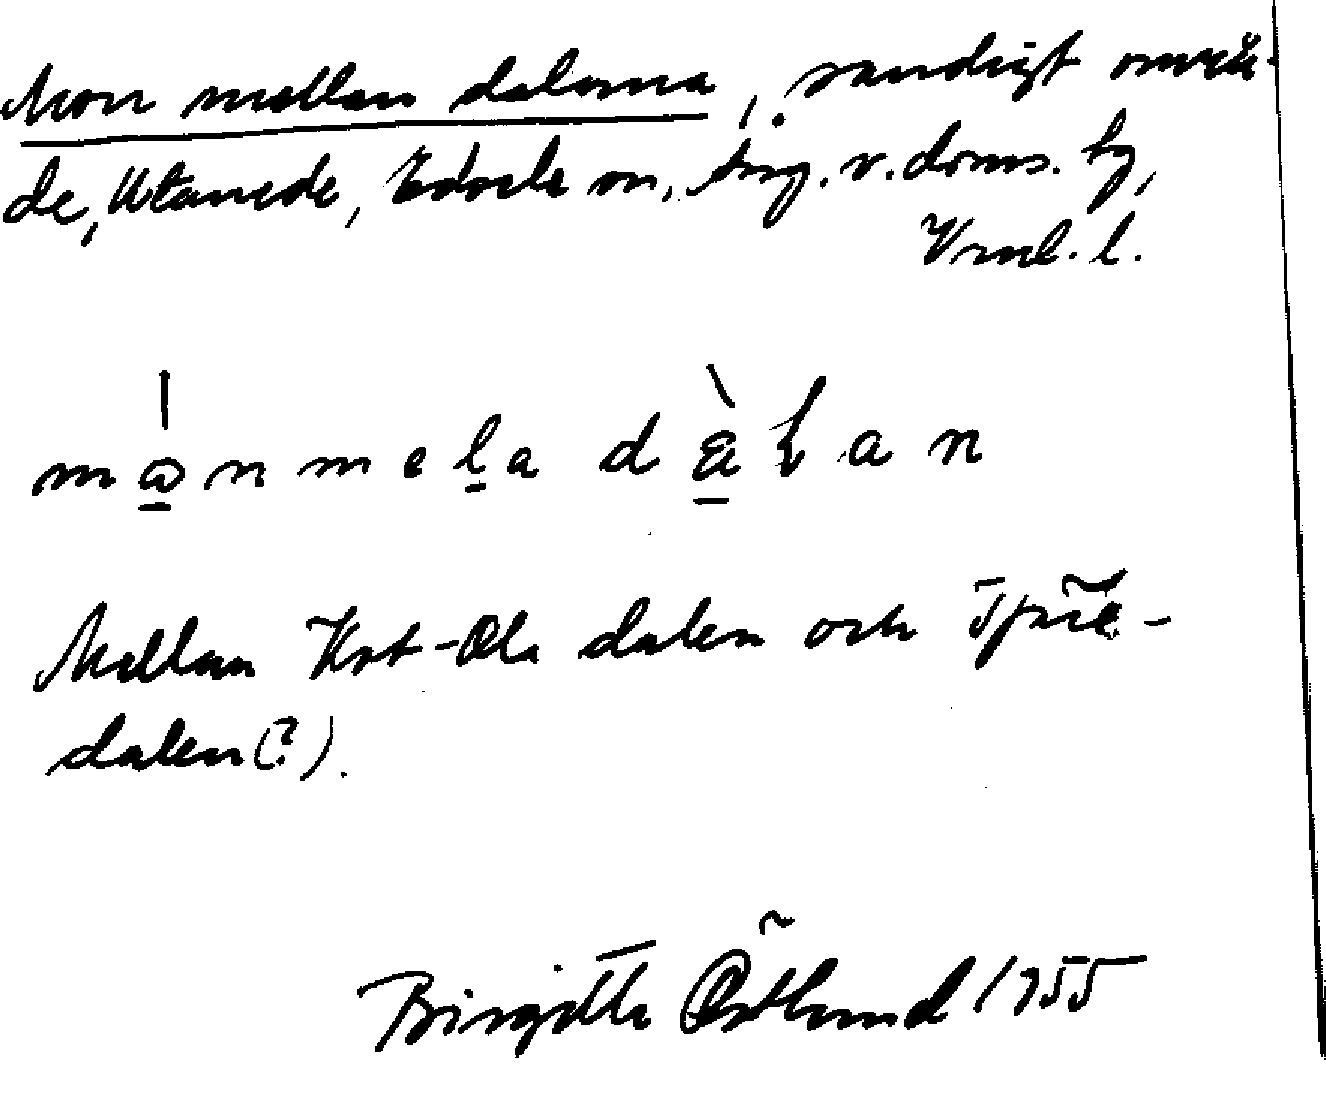 Mon mellan dalarna, sandigt områ-
de, Utanede, Edsele sn, Ång. v. doms. hg,
Vrml. l.
m o n m e l a d a l a n
Mellan Kot-Ola dalen och
dalen (?).
Birgitta Östlund 1955